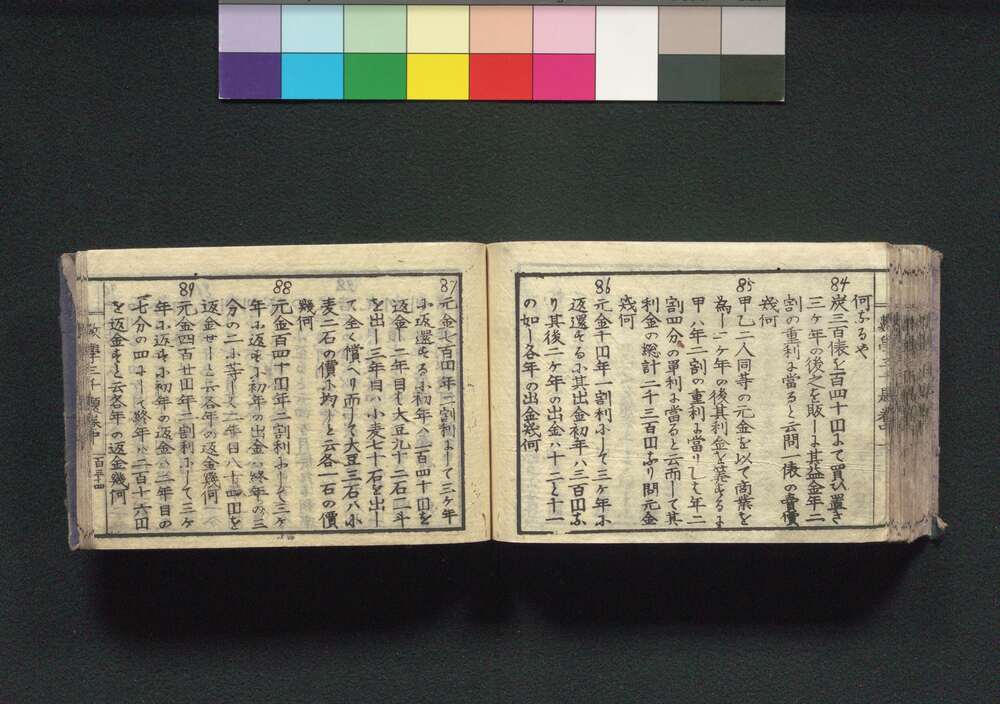 何ぢるや
84
炭三百俵を百四十円ニて買ひ置き
三ヶ年の後之を販しニ其益金年二
割の重利ニ當ると云問一俵の賣價
幾何
85
甲乙二人同等の元金を以て商業を
為し一ヶ年の後其利金を算するニ
甲ハ年二割の重利ニ當り乙ハ年二
割四分の單利ニ當ると云而して其
利金の総計二千三百円なり問元金
幾何
86
元金千円年一割利ニして三ヶ年ニ
返還する小其出金初年ハ三百円な
り其後二ヶ年の出金ハ十二と十一
の如し各年の出金幾何
87
元金七百円年二割利ニして三ヶ年
小返還する小初年ハ二百四十円を
返金し二年目ハ大豆九十二石二斗
を出し三年目ハ小麦七十石を出し
て全く償へり而して大豆三石ハ小
麦二石の價小均しと云各一石の價
幾何
88
元金百四十円年二割利小して三ヶ
年小返す小初年の出金ハ終年の三
分の二小等しく二年目八十四円を
返金せしと云各年の返金幾何
89
元金四百廿円年二割利小して三ヶ
年小返す小初年の返金ハ二年目の
七分の四小して終年ハ二百十六円
を返金すと云各年の返金幾何
數學三千題卷中
一百五十四